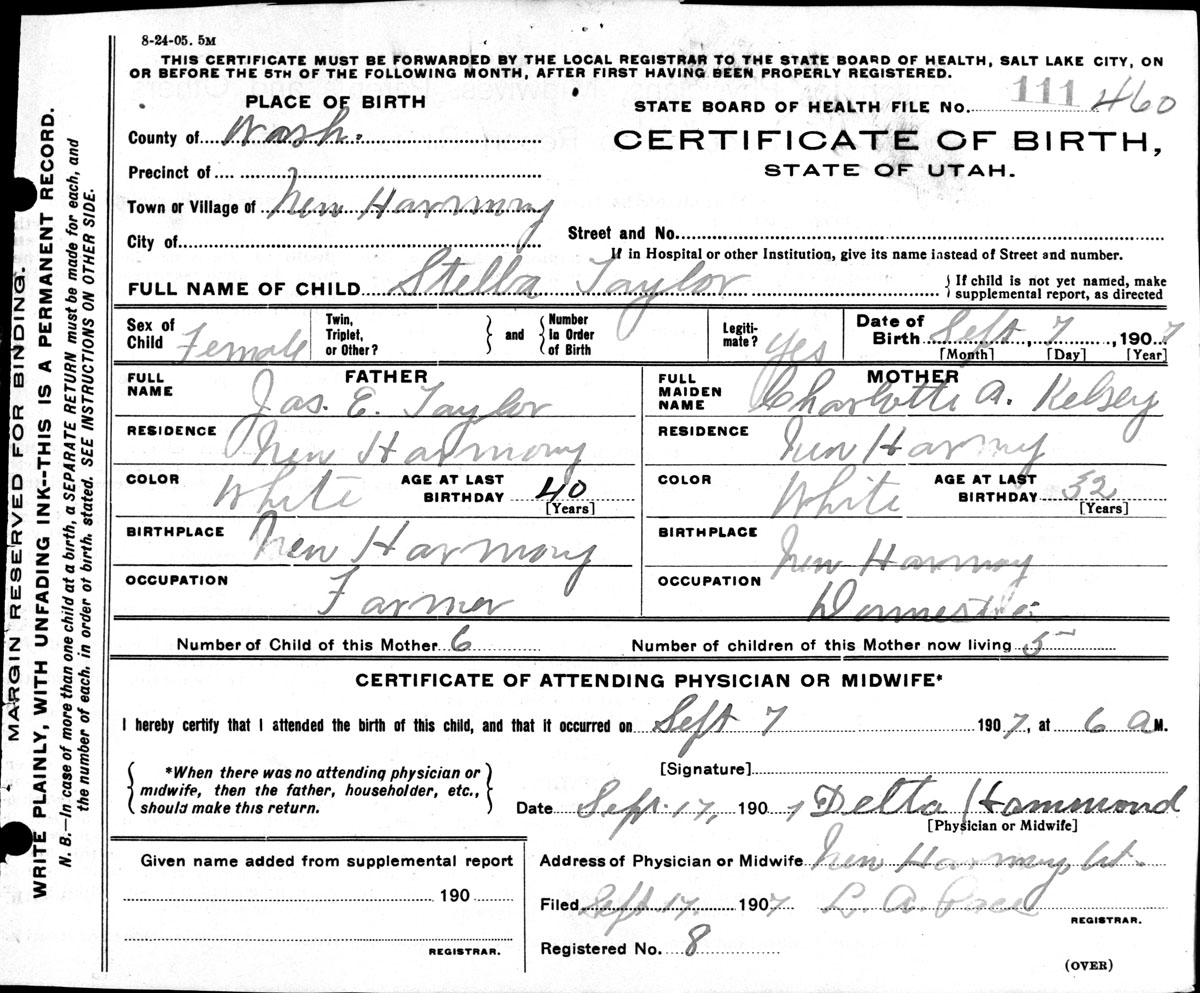 8-24-05. 5M
THIS CERTIFICATE MUST BE FORWARDED BY THE LOCAL REGISTRAR TO THE STATE BOARD OF HEALTH, SALT LAKE CITY, ON
OR BEFORE THE 5TH OF THE FOLLOWING MONTH, AFTER FIRST HAVING BEEN PROPERLY REGISTERED.
PLACE OF BIRTH
STATE BOARD OF HEALTH FILE No. 111 460
County of Wash:
CERTIFICATE OF BIRTH,
STATE OF UTAH.
Precinct of
Town or Village of New Harmony
City of
Street and No.
If in Hospital or other Institution, give its name instead of Street and number.
FULL NAME OF CHILD Stella Taylor
{ If child is not yet named, make
supplemental report, as directed
Sex of Child Female
Twin, Triplet, or Other?
and
Number In Order of Birth
Legiti-mate? Yes
Date of Birth Sept, 7, 1907
[Month] [Day] [Year]
FATHER
FULL NAME Jas. E. Taylor
RESIDENCE New Harmony
COLOR White AGE AT LAST BIRTHDAY 40
[Years]
BIRTHPLACE New Harmony
OCCUPATION Farmer
MOTHER
FULL MAIDEN NAME Charlotte A. Kelsey
RESIDENCE New Harmy
COLOR White AGE AT LAST BIRTHDAY 32
[Years]
BIRTHPLACE New Harmony
OCCUPATION Domestic
Number of Child of this Mother 6
Number of children of this Mother now living 5
CERTIFICATE OF ATTENDING PHYSICIAN OR MIDWIFE*
I hereby certify that I attended the birth of this child, and that it occurred on Sept 7 1907, at 6 A M.
*When there was no attending physician or
midwife, then the father, householder, etc.,
should make this return.
[Signature]
Date Sept. 17, 1907 Delta Hammond
[Physician or Midwife]
Given name added from supplemental report
190
REGISTRAR.
Address of Physician or Midwife New Harmony, Ut.
Filed Sept 17. 1907 L. A. Pace
REGISTRAR.
Registered No. 8
(OVER)
MARGIN RESERVED FOR BINDING.
WRITE PLAINLY, WITH UNFADING INK--THIS IS A PERMANENT RECORD.
N. B.—In case of more than one child at a birth, a SEPARATE RETURN must be made for each, and
the number of each, in order of birth, stated. SEE INSTRUCTIONS ON OTHER SIDE.